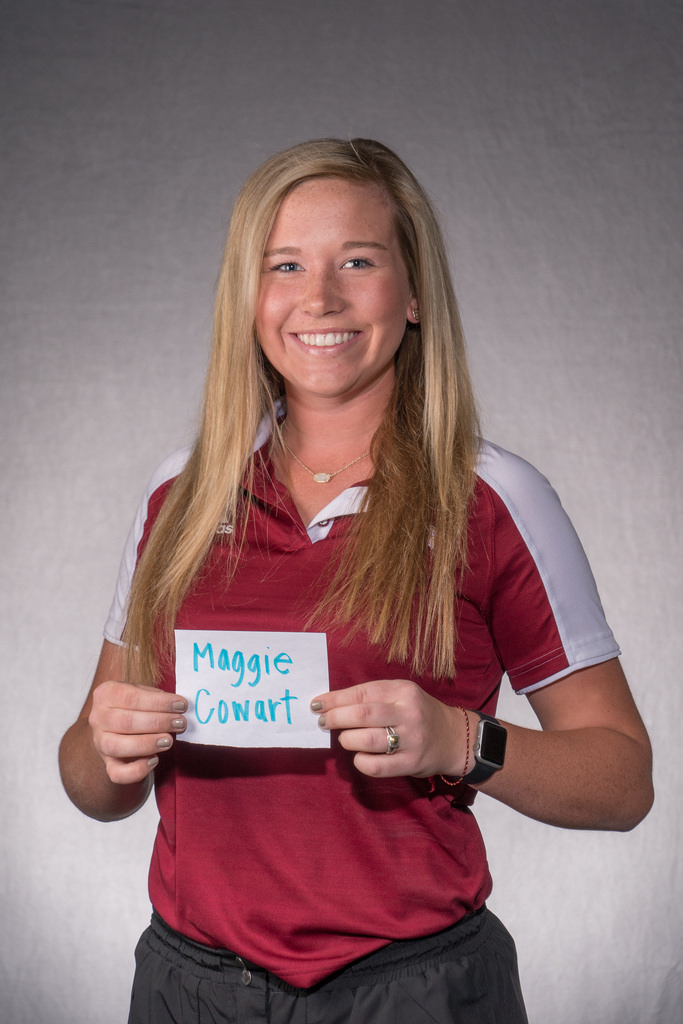 Maggie
Cowart